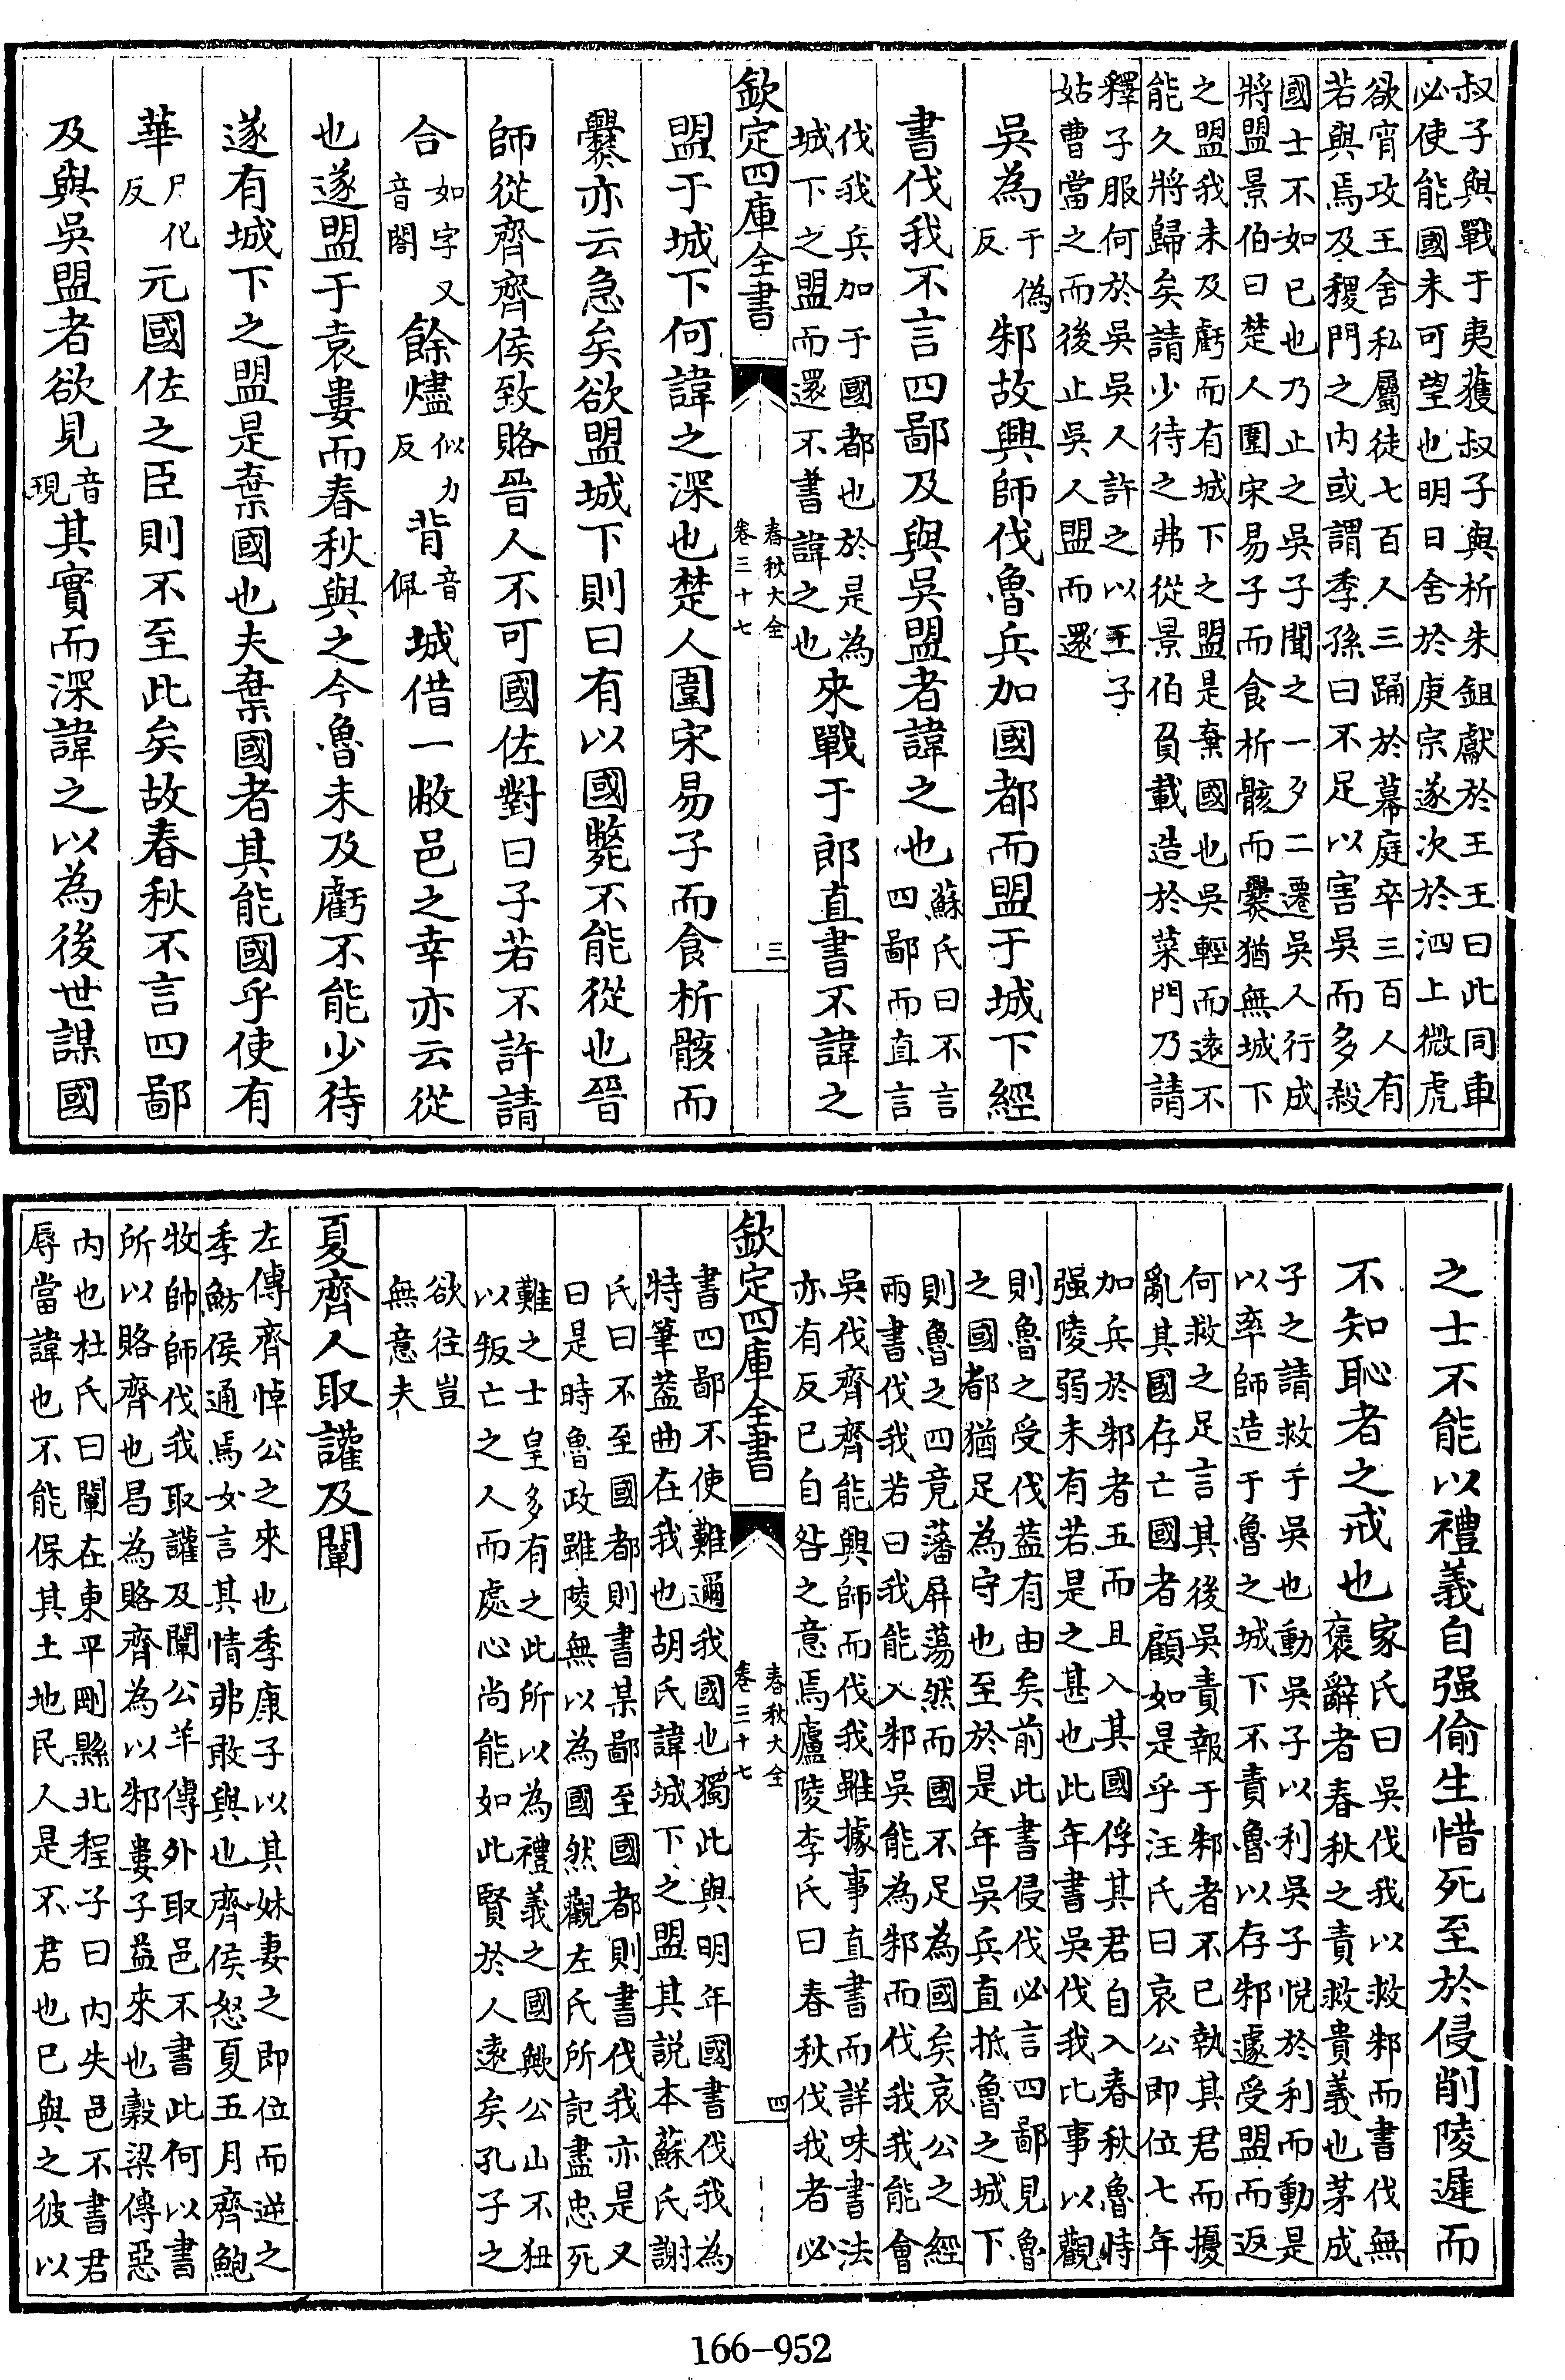 叔子與戰于夷獲叔子與析朱鉏獻於王王曰此同車
必使能國未可望也明日舍於庚宗遂次於泗上微虎
欲宵攻王舍私屬徒七百人三踊於幕庭卒三百人有
若與焉及稷門之内或謂季孫曰不足以害吳而多殺
國士不如已也乃止之吳子聞之一夕三遷吳人行成
將盟景伯曰楚人圍宋易子而食析骸而爨猶無城下
之盟我未及虧而有城下之盟是棄國也吳輕而遠不
能久將歸矣請少待之弗從景伯負載造於萊門乃請
釋子服何於吳吳人許之以王子
姑曹當之而後止吳人盟而還
吳為干偽反邾故興師伐魯兵加國都而盟于城下經
書伐我不言四鄙及與吳盟者諱之也蘇氏曰不言四鄙而直言
伐我兵加于國都也於是為城下之盟而還不書諱之也來戰于郎直書不諱之
欽定四庫全書
春秋大全
卷三十七
三
盟于城下何諱之深也楚人圍宋易子而食析骸而
爨亦云急矣欲盟城下則曰有以國斃不能從也晉
師從齊齊侯致賂晉人不可國佐對曰子若不許請
合如字又音閤餘燼似力反背音佩城借一敝邑之幸亦云從
也遂盟于袁婁而春秋與之今魯未及虧不能少待
遂有城下之盟是棄國也夫棄國者其能國乎使有
華尸化反元國佐之臣則不至此矣故春秋不言四鄙
及與吳盟者欲見音現其實而深諱之以為後世謀國
之士不能以禮義自强偷生惜死至於侵削陵遲而
不知恥者之戒也家氏曰吳伐我以救邾而書伐無褒辭者春秋之責救貴義也茅成
子之請救于吳也動吳子以利吳子悅於利而動是
以率師造于魯之城下不責魯以存邾遽受盟而返
何救之足言其後吳責報于邾者不已執其君而擾
亂其國存亡國者顧如是乎汪氏曰哀公即位七年
加兵於邾者五而且入其國俘其君自入春秋魯恃
强陵弱未有若是之甚也此年書吳伐我比事以觀
則魯之受伐蓋有由矣前此書侵伐必言四鄙見魯
之國都猶足為守也至於是年吳兵直抵魯之城下
則魯之四竟藩屏蕩然而國不足為國矣哀公之經
兩書伐我若曰我能入邾吳能為邾而伐我我能會
吳伐齊齊能興師而伐我雖據事直書而詳味書法
亦有反已自咎之意焉廬陵李氏曰春秋伐我者必
欽定四庫全書
春秋大全
卷三十七
四
書四鄙不使難邇我國也獨此與明年國書伐我為
特筆蓋曲在我也胡氏諱城下之盟其説本蘇氏謝
氏曰不至國都則書某鄙至國都則書伐我亦是又
曰是時魯政雖陵無以為國然觀左氏所記盡忠死
難之士皇多有之此所以為禮義之國歟公山不狃
以叛亡之人而處心尚能如此賢於人遠矣孔子之
欲往豈
無意夫
夏齊人取讙及闡
左傳齊悼公之來也季康子以其妹妻之即位而逆之
季魴侯通焉女言其情弗敢與也齊侯怒夏五月齊鮑
牧帥師伐我取讙及闡公羊傳外取邑不書此何以書
所以賂齊也曷為賂齊為以邾婁子益來也穀梁傳惡
内也杜氏曰闡在東平剛縣北程子曰内失邑不書君
辱當諱也不能保其土地民人是不君也已與之彼以
166-952